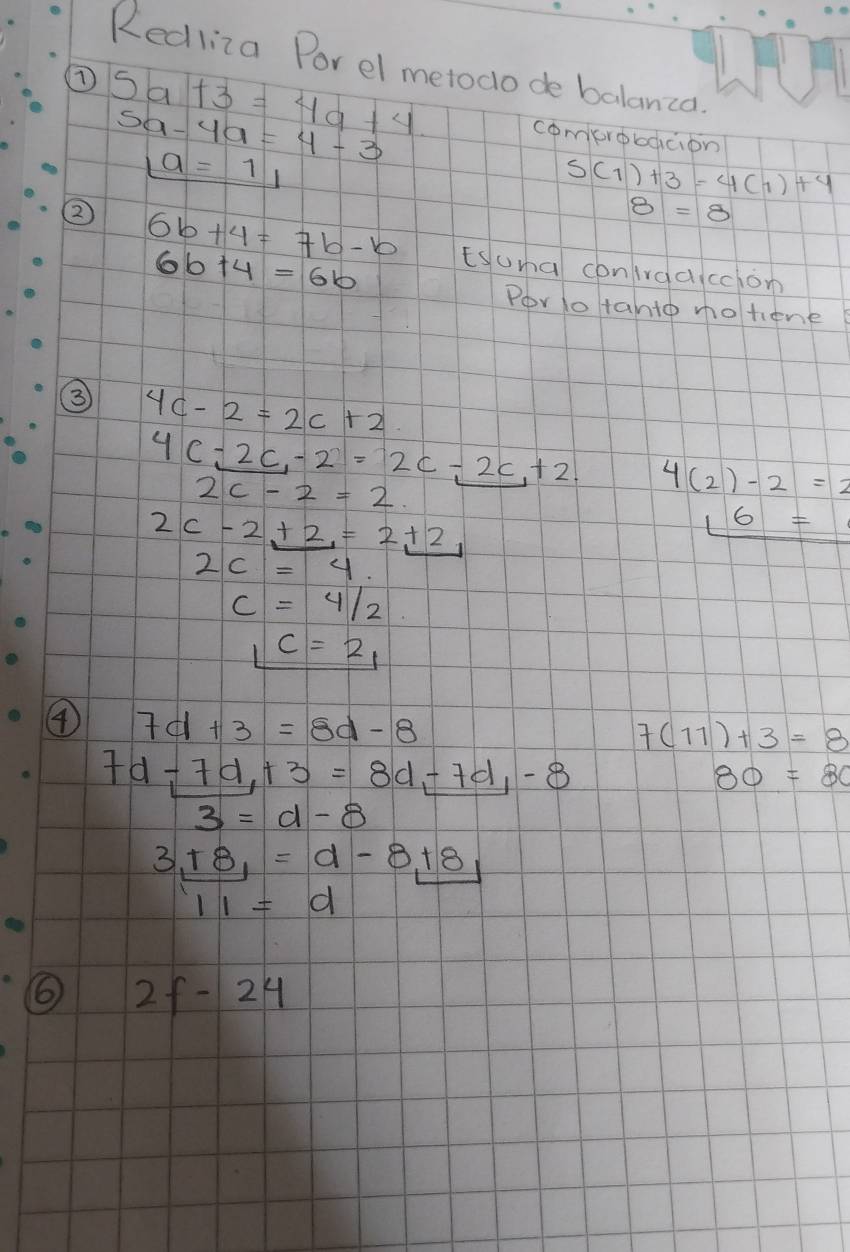 Realiza Por el metodo de balanza.
① 5a+3 = 4a+4.
5a-4a = 4-3
a = 1
comprobación
5(1)+3 = 4(1)+4
8 = 8
② 6b+4 = 7b-b
6b+4 = 6b
Es una contradicción
Por lo tanto no tiene
③ 4c-2 = 2c+2.
4c-2c-2 = 2c-2c+2.
2c-2 = 2.
2c-2+2 = 2+2
2c = 4.
c = 4/2.
c = 2
4(2)-2 = 2
6 =
④ 7d+3 = 8d-8
7d-7d+3 = 8d-7d-8
3 = d-8
3+8 = d-8+8
11 = d
7(11)+3 = 8
80 = 80
⑥ 2f- 24